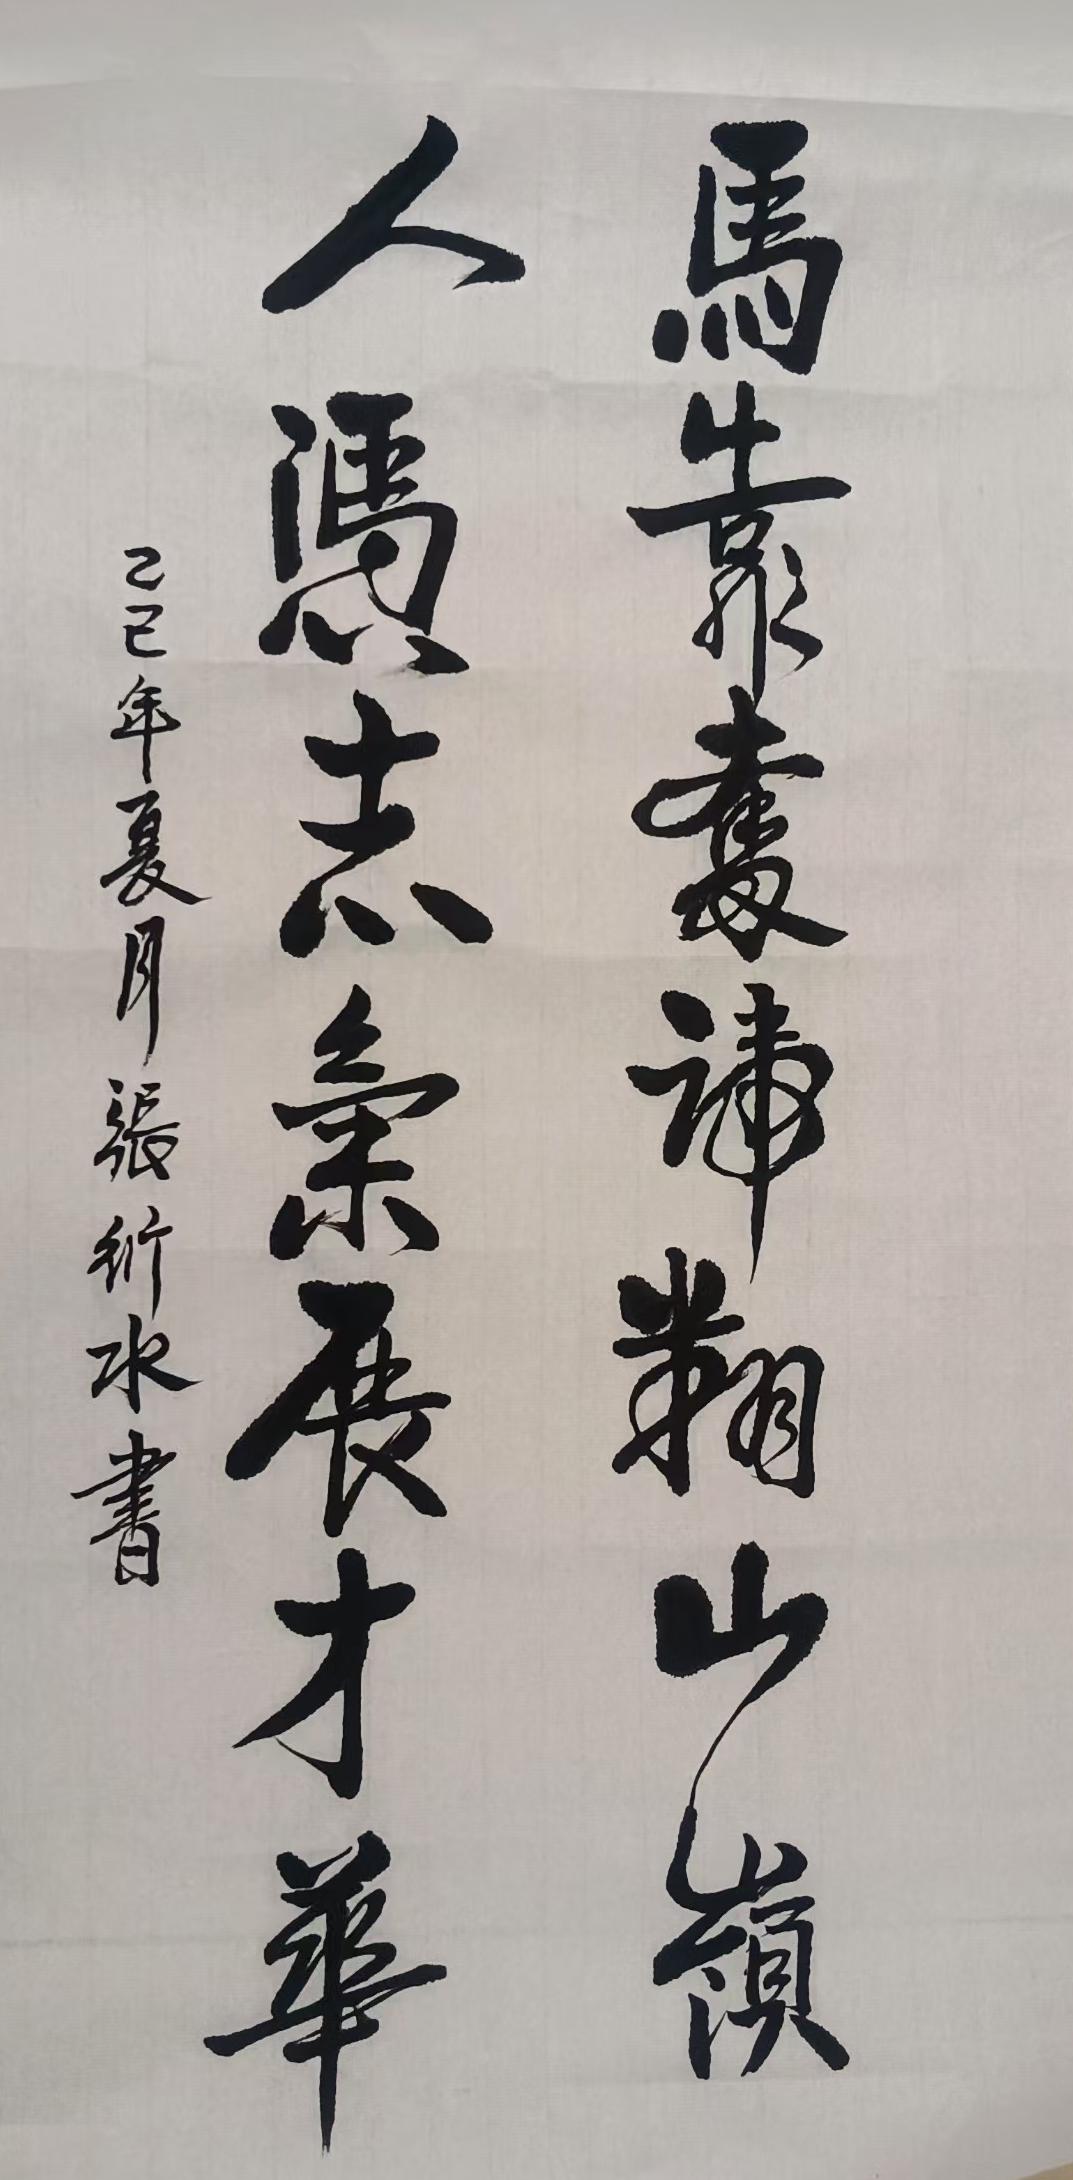 馬靠奮蹄翻山嶺
人憑志氣展才華
乙巳年夏月張衍水書